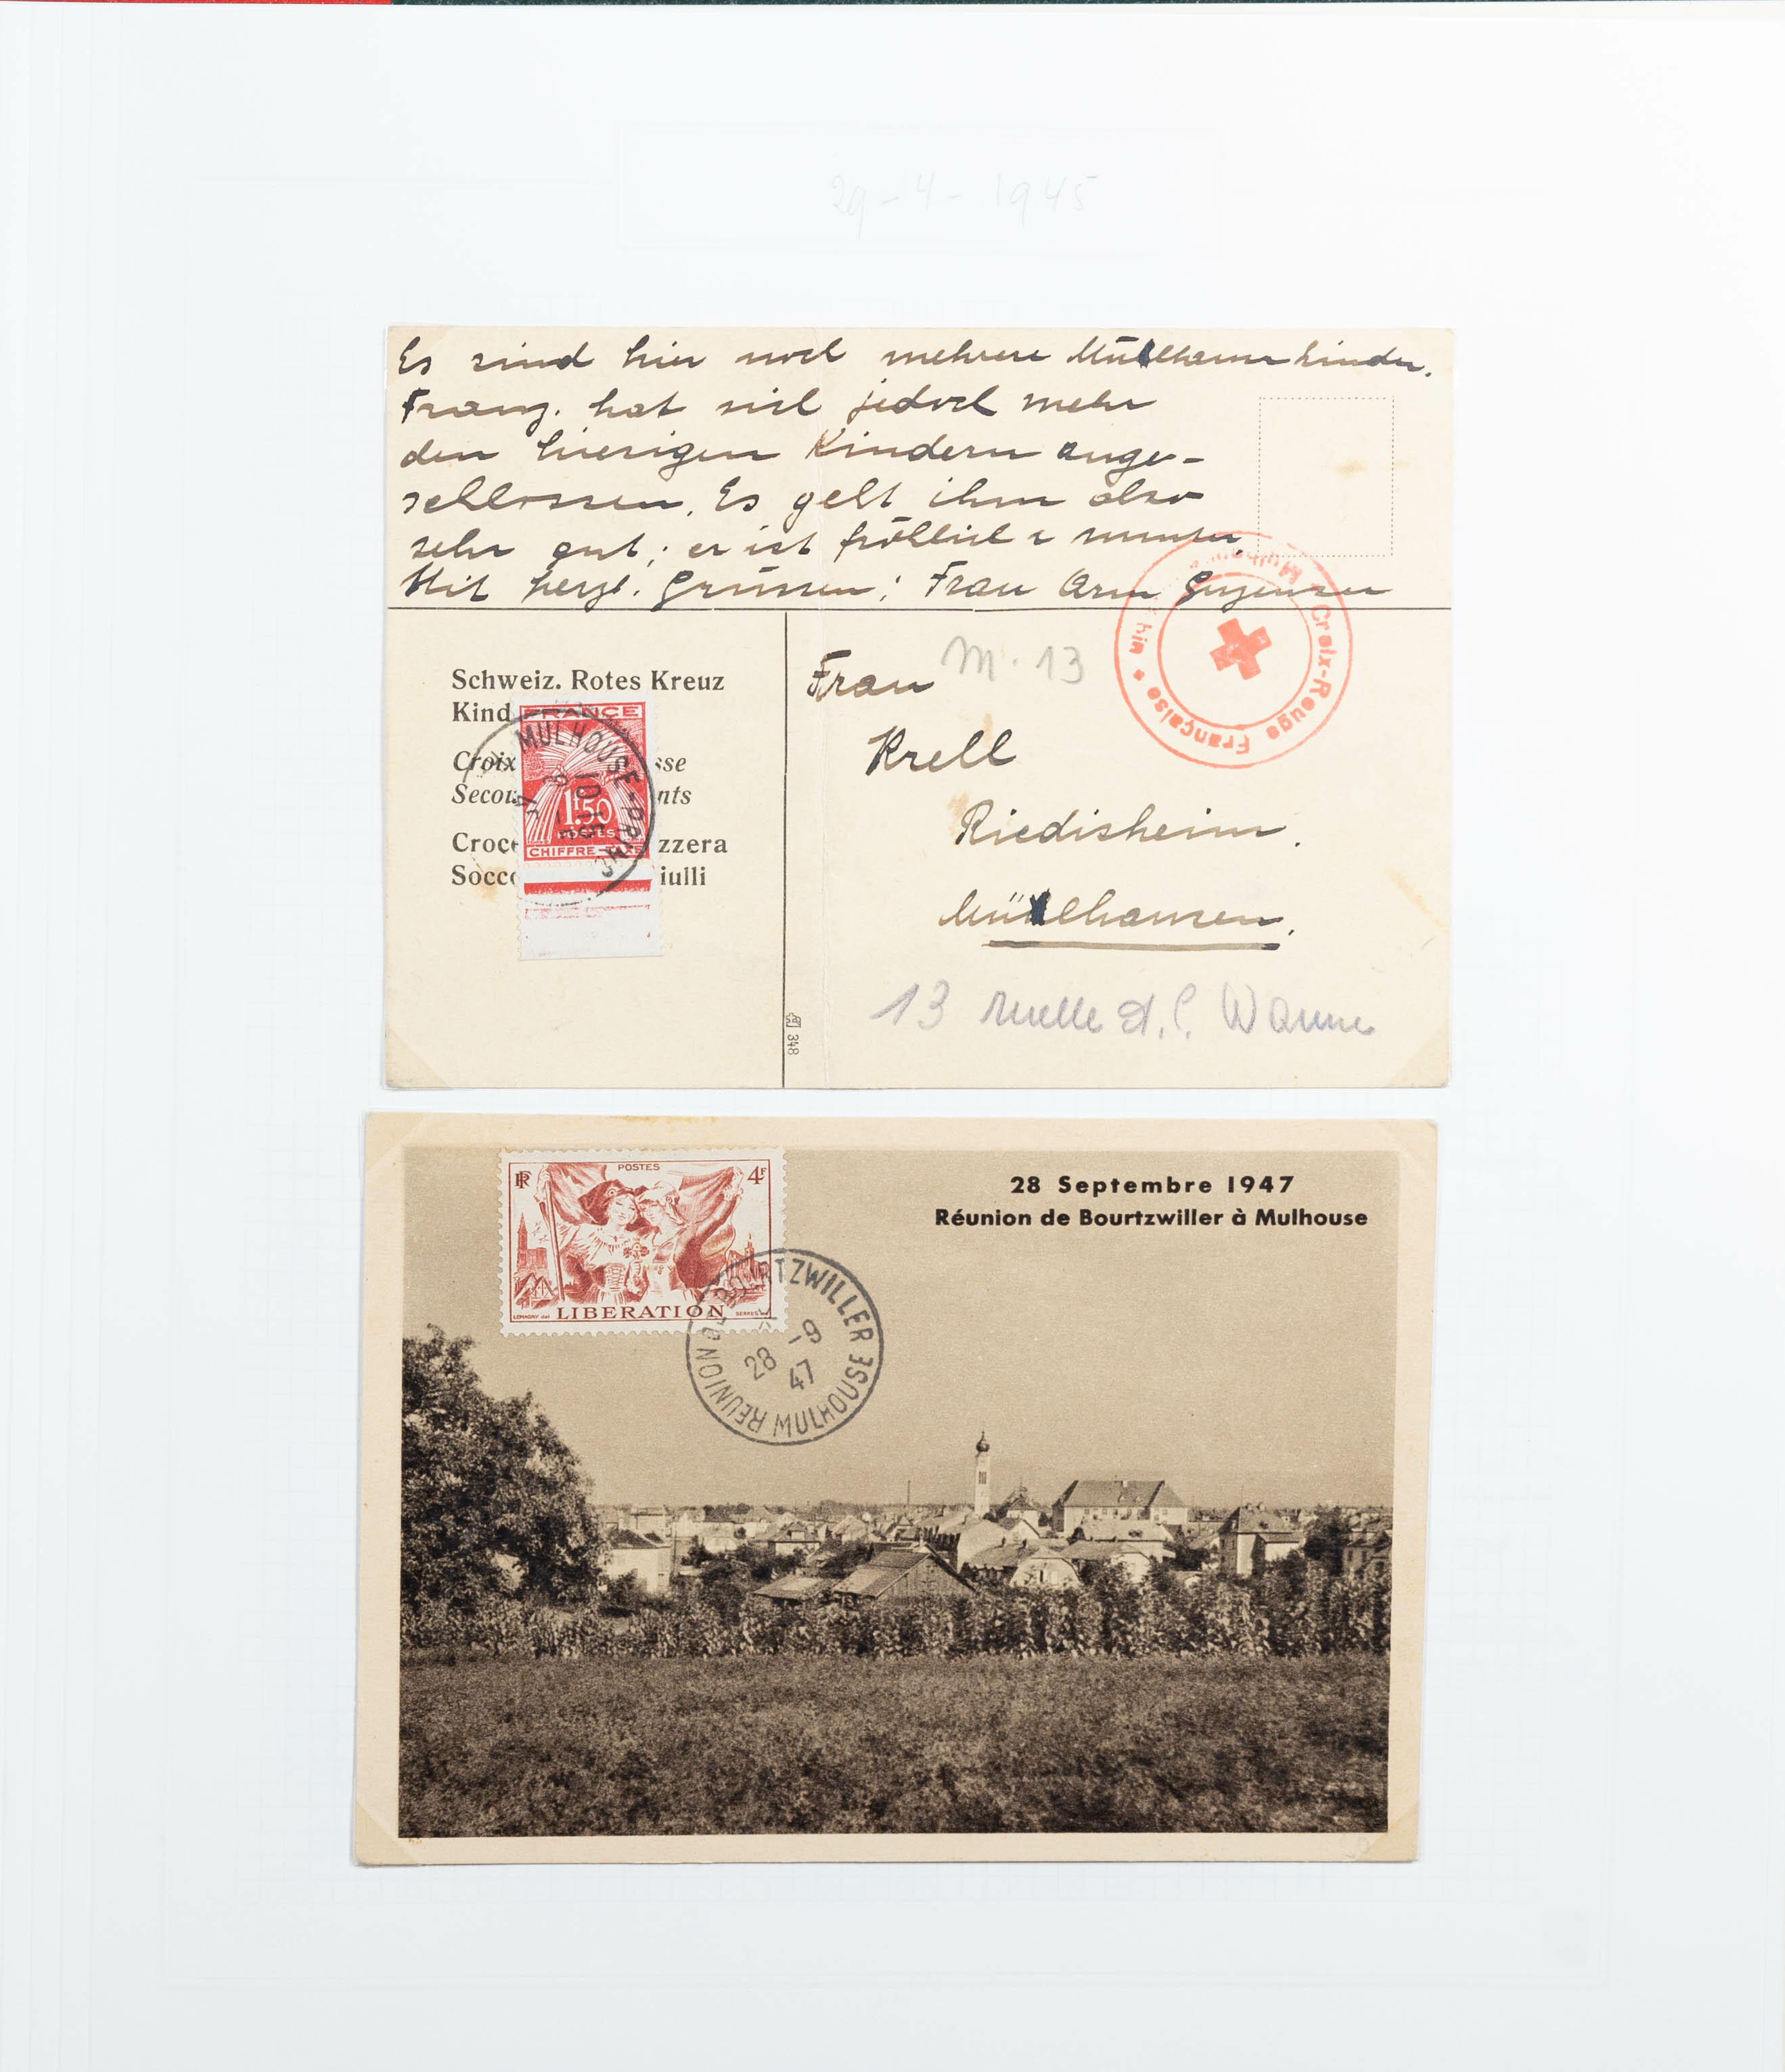 29-4-1945
Es sind hier noch mehrere Mülhauserkinder.
Franz. hat sich jedoch mehr
den hiesigen Kindern ange-
schlossen. Es geht ihm also
sehr gut; er ist fröhlich & munter.
Mit herzl. Grüssen: Frau
Croix-Rouge Française
Schweiz. Rotes Kreuz
Kind
Croix sse
Secou nts
Croce zzera
Socco iulli
FRANCE
1F50
POSTES
CHIFFRE-TAXE
MULHOUSE-PRINC
Frau M. 13
Krell
Riedisheim.
Mülhausen.
13 ruelle d. l. Wanne
348
RF POSTES 4F
LIBERATION
LEMAGNY del SERRES
28 Septembre 1947
Réunion de Bourtzwiller à Mulhouse
REUNION DE BOURTZWILLER
28 -9
47
MULHOUSE